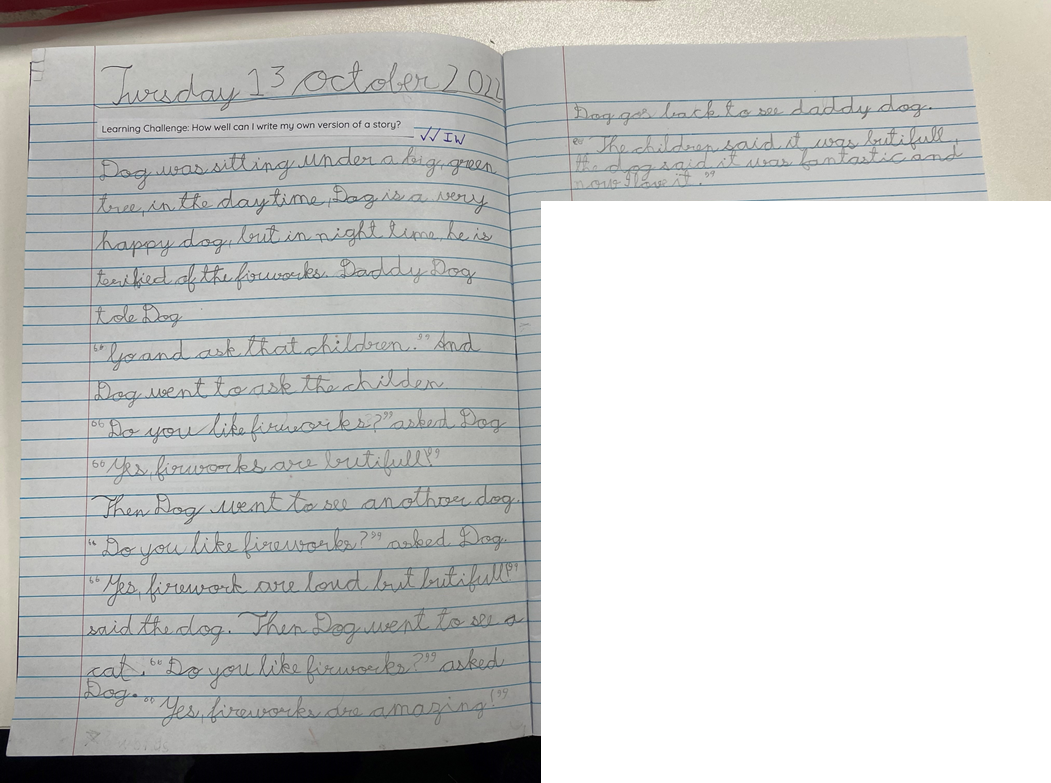 Tursday 13 October 2022
Learning Challenge: How well can I write my own version of a story?
✓✓ I W
Dog was sitting under a big, green
tree, in the daytime, Dog is a very
happy dog, but in night time, he is
terified of the firworks. Daddy Dog
tole Dog
“Go and ask that children.” And
Dog went to ask the childen
“Do you like firworks?” asked Dog
“Yes, firworks are butifull!”
Then Dog went to see anothoer dog.
“Do you like fireworks?” asked Dog.
“Yes, firework are loud but butifull!”
said the dog. Then Dog went to see a
cat. “Do you like firworks?” asked
Dog. “Yes, fireworks are amazing!”
Dog gos back to see daddy dog.
“The children said it was butifull,
the dog said it was fantastic and
now I love it.”